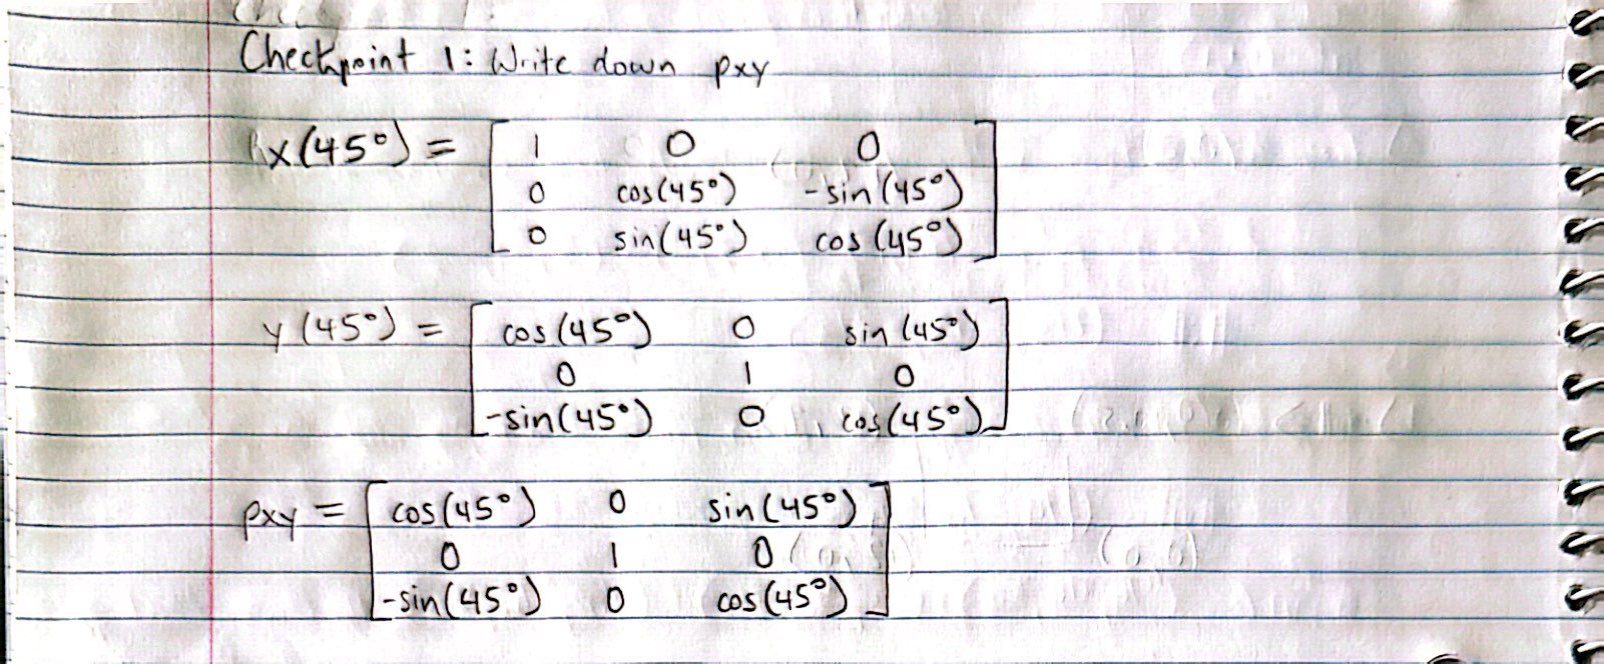 Checkpoint 1: Write down pxy
x(45°) = [ 1 0 0
0 cos(45°) -sin(45°)
0 sin(45°) cos(45°) ]
y(45°) = [ cos(45°) 0 sin(45°)
0 1 0
-sin(45°) 0 cos(45°) ]
pxy = [ cos(45°) 0 sin(45°)
0 1 0
-sin(45°) 0 cos(45°) ]